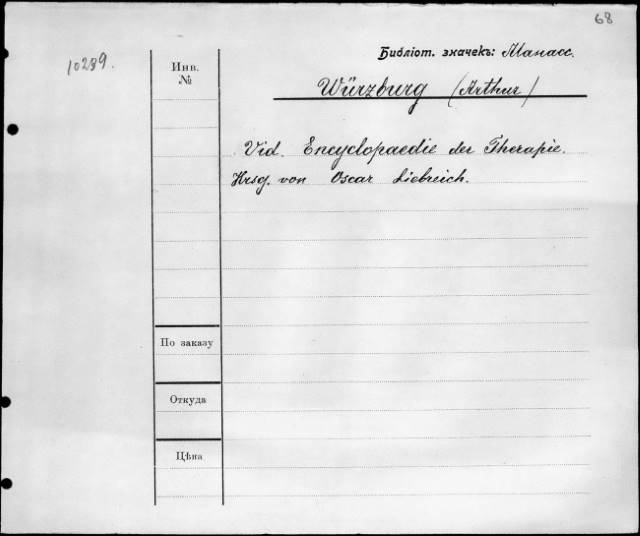 68
10239.
Библіот. значекъ: Манасс.
Инв.
№
Würzburg (Arthur)
Vid. Encyclopaedie der Therapie.
Hrsg. von Oscar Liebreich.
По заказу
Откуда
Цѣна